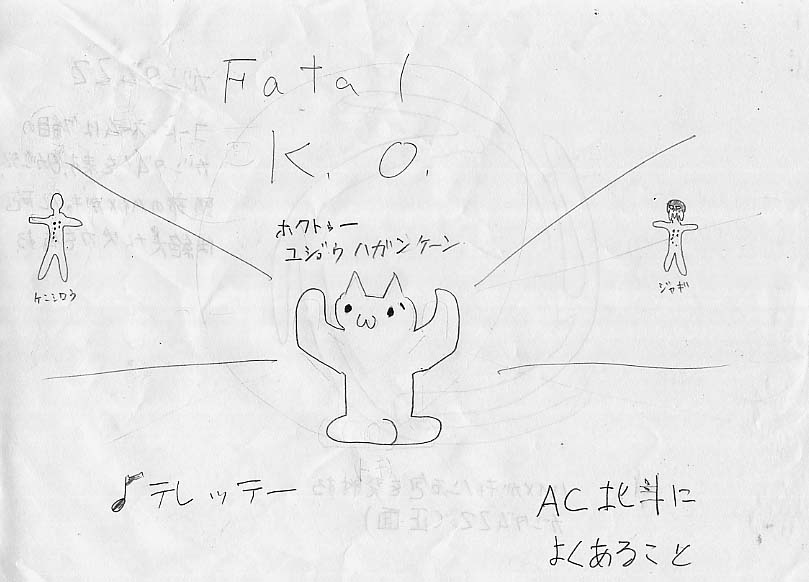 Fatal
K.O.
ホクトゥー
ユジョウハガンケーン
ケンシロウ
ジャギ
♪テレッテー
AC北斗に
よくあること